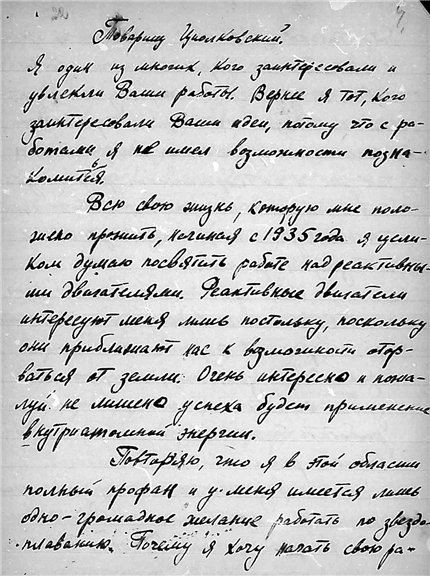 22
Товарищ Циолковский.
Я один из многих, кого заинтересовали и
увлекли Ваши работы. Вернее я тот, кого
заинтересовали Ваши идеи, потому что с ра-
ботами я не имел возможности позна-
комиться.
Всю свою жизнь, которую мне поло-
жено прожить, начиная с 1935 года я цели-
ком думаю посвятить работе над реактивны-
ми двигателями. Реактивные двигатели
интересуют меня лишь постольку, поскольку
они приближают нас к возможности отор-
ваться от земли. Очень интересно и пожа-
луй не лишено успеха будет применение
внутриатомной энергии.
Повторяю, что я в этой области
полный профан и у меня имеется лишь
одно-громадное желание работать по звездо-
плаванию. Почему я хочу начать свою ра-